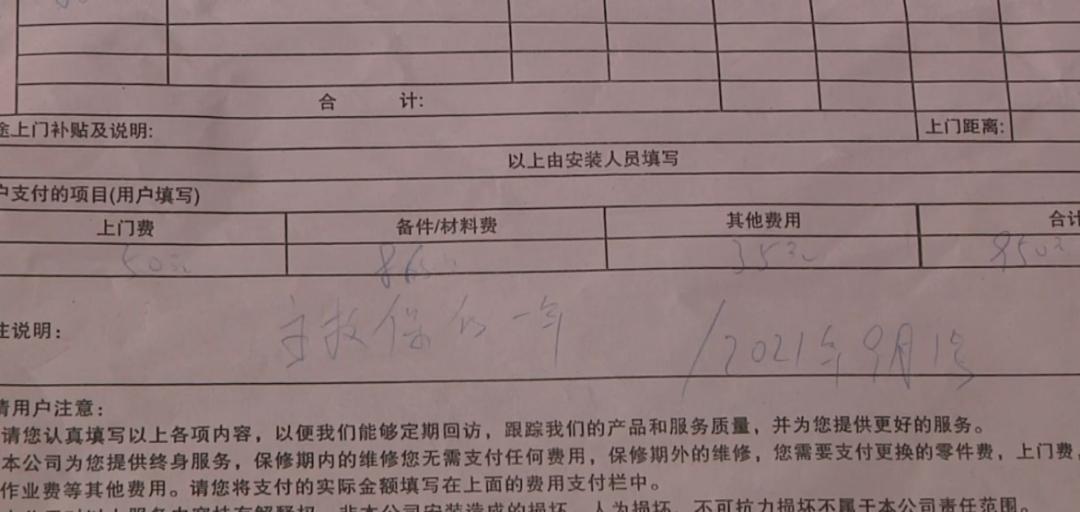 合 计:
途上门补贴及说明: 上门距离:
以上由安装人员填写
户支付的项目(用户填写)
上门费 备件/材料费 其他费用 合计
50元 35元 950元
注说明: 主板保修一年 /2021年9月1号
请用户注意:
请您认真填写以上各项内容，以便我们能够定期回访，跟踪我们的产品和服务质量，并为您提供更好的服务。
本公司为您提供终身服务，保修期内的维修您无需支付任何费用，保修期外的维修，您需要支付更换的零件费，上门费，
作业费等其他费用。请您将支付的实际金额填写在上面的费用支付栏中。
非本公司安装造成的损坏、人为损坏、不可抗力损坏不属于本公司责任范围。